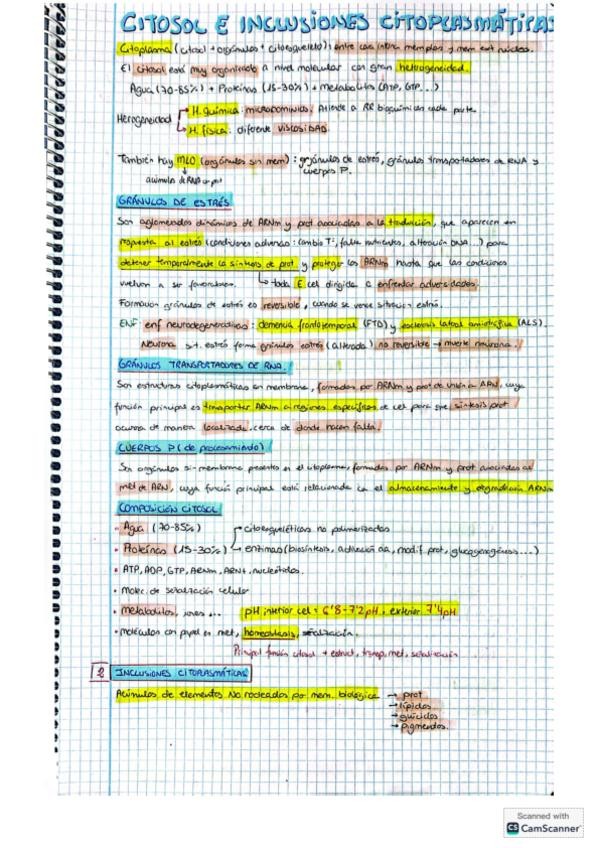 CITOSOL E INCLUSIONES CITOPLASMÁTICAS
Citoplasma (citosol + orgánulos + citoesqueleto): entre cara interna memplas y mem ext núcleo.
El citosol está muy organizado a nivel molecular con gran heterogeneidad.
Agua (70-85%) + Proteínas (15-30%) + metabolitos (ATP, GTP...)
Herogeneidad
H. química: microdominios. Atiende a RR bioquímicas cada parte.
H. física: diferente VISCOSIDAD.
También hay MLO (orgánulos sin mem): gránulos de estrés, gránulos transportadores de RNA y cuerpos P.
acúmulo de RNA o prot
GRÁNULOS DE ESTRÉS
Son aglomerados dinámicos de ARNm y prot asociadas a la traducción, que aparecen en
respuesta al estrés (condiciones adversas: cambio Tª, falta nutrientes, alteración DNA...) para
detener temporalmente la síntesis de prot. y proteger los ARNm hasta que las condiciones
vuelvan a ser favorables. toda E cel dirigida a enfrentar adversidades.
Formación gránulos de estrés es reversible, cuando se vence situación estrés.
ENF enf neurodegenerativas: demencia frontotemporal (FTD) y esclerosis lateral amiotrófica (ALS).
Neurona sit. estrés forma gránulos estrés (alterada) no reversible → muerte neurona.
GRÁNULOS TRANSPORTADORES DE RNA.
Son estructuras citoplasmáticas sin membrana, formadas por ARNm y prot de unión a ARN, cuya
función principal es transportar ARNm a regiones específicas de cel para que síntesis prot
ocurra de manera localizada, cerca de donde hacen falta.
CUERPOS P (de procesamiento)
Son orgánulos sin membrana presentes en el citoplasma, formados por ARNm y prot asociadas al
met de ARN, cuya función principal está relacionada con el almacenamiento y degradación ARNm
COMPOSICIÓN CITOSOL
• Agua (70-85%)
citoesqueléticas no polimerizadas
• Proteínas (15-30%) enzimas (biosíntesis, activación aa, modif. prot, glucogenogénesis...)
• ATP, ADP, GTP, ARNm, ARNt, nucleótidos.
• Molec. de señalización celular
• metabolitos, iones ... pH interior cel = 6'8-7'2 pH, exterior 7'4 pH
• moléculas con papel en met, homeostasis, señalización.
Principal función citosol → estruct, transp, met, señalización
2 INCLUSIONES CITOPLASMÁTICAS
Acúmulos de elementos No rodeados por mem. biológica → prot
→ lípidos
→ glúcidos
→ pigmentos.
Scanned with
CS CamScanner